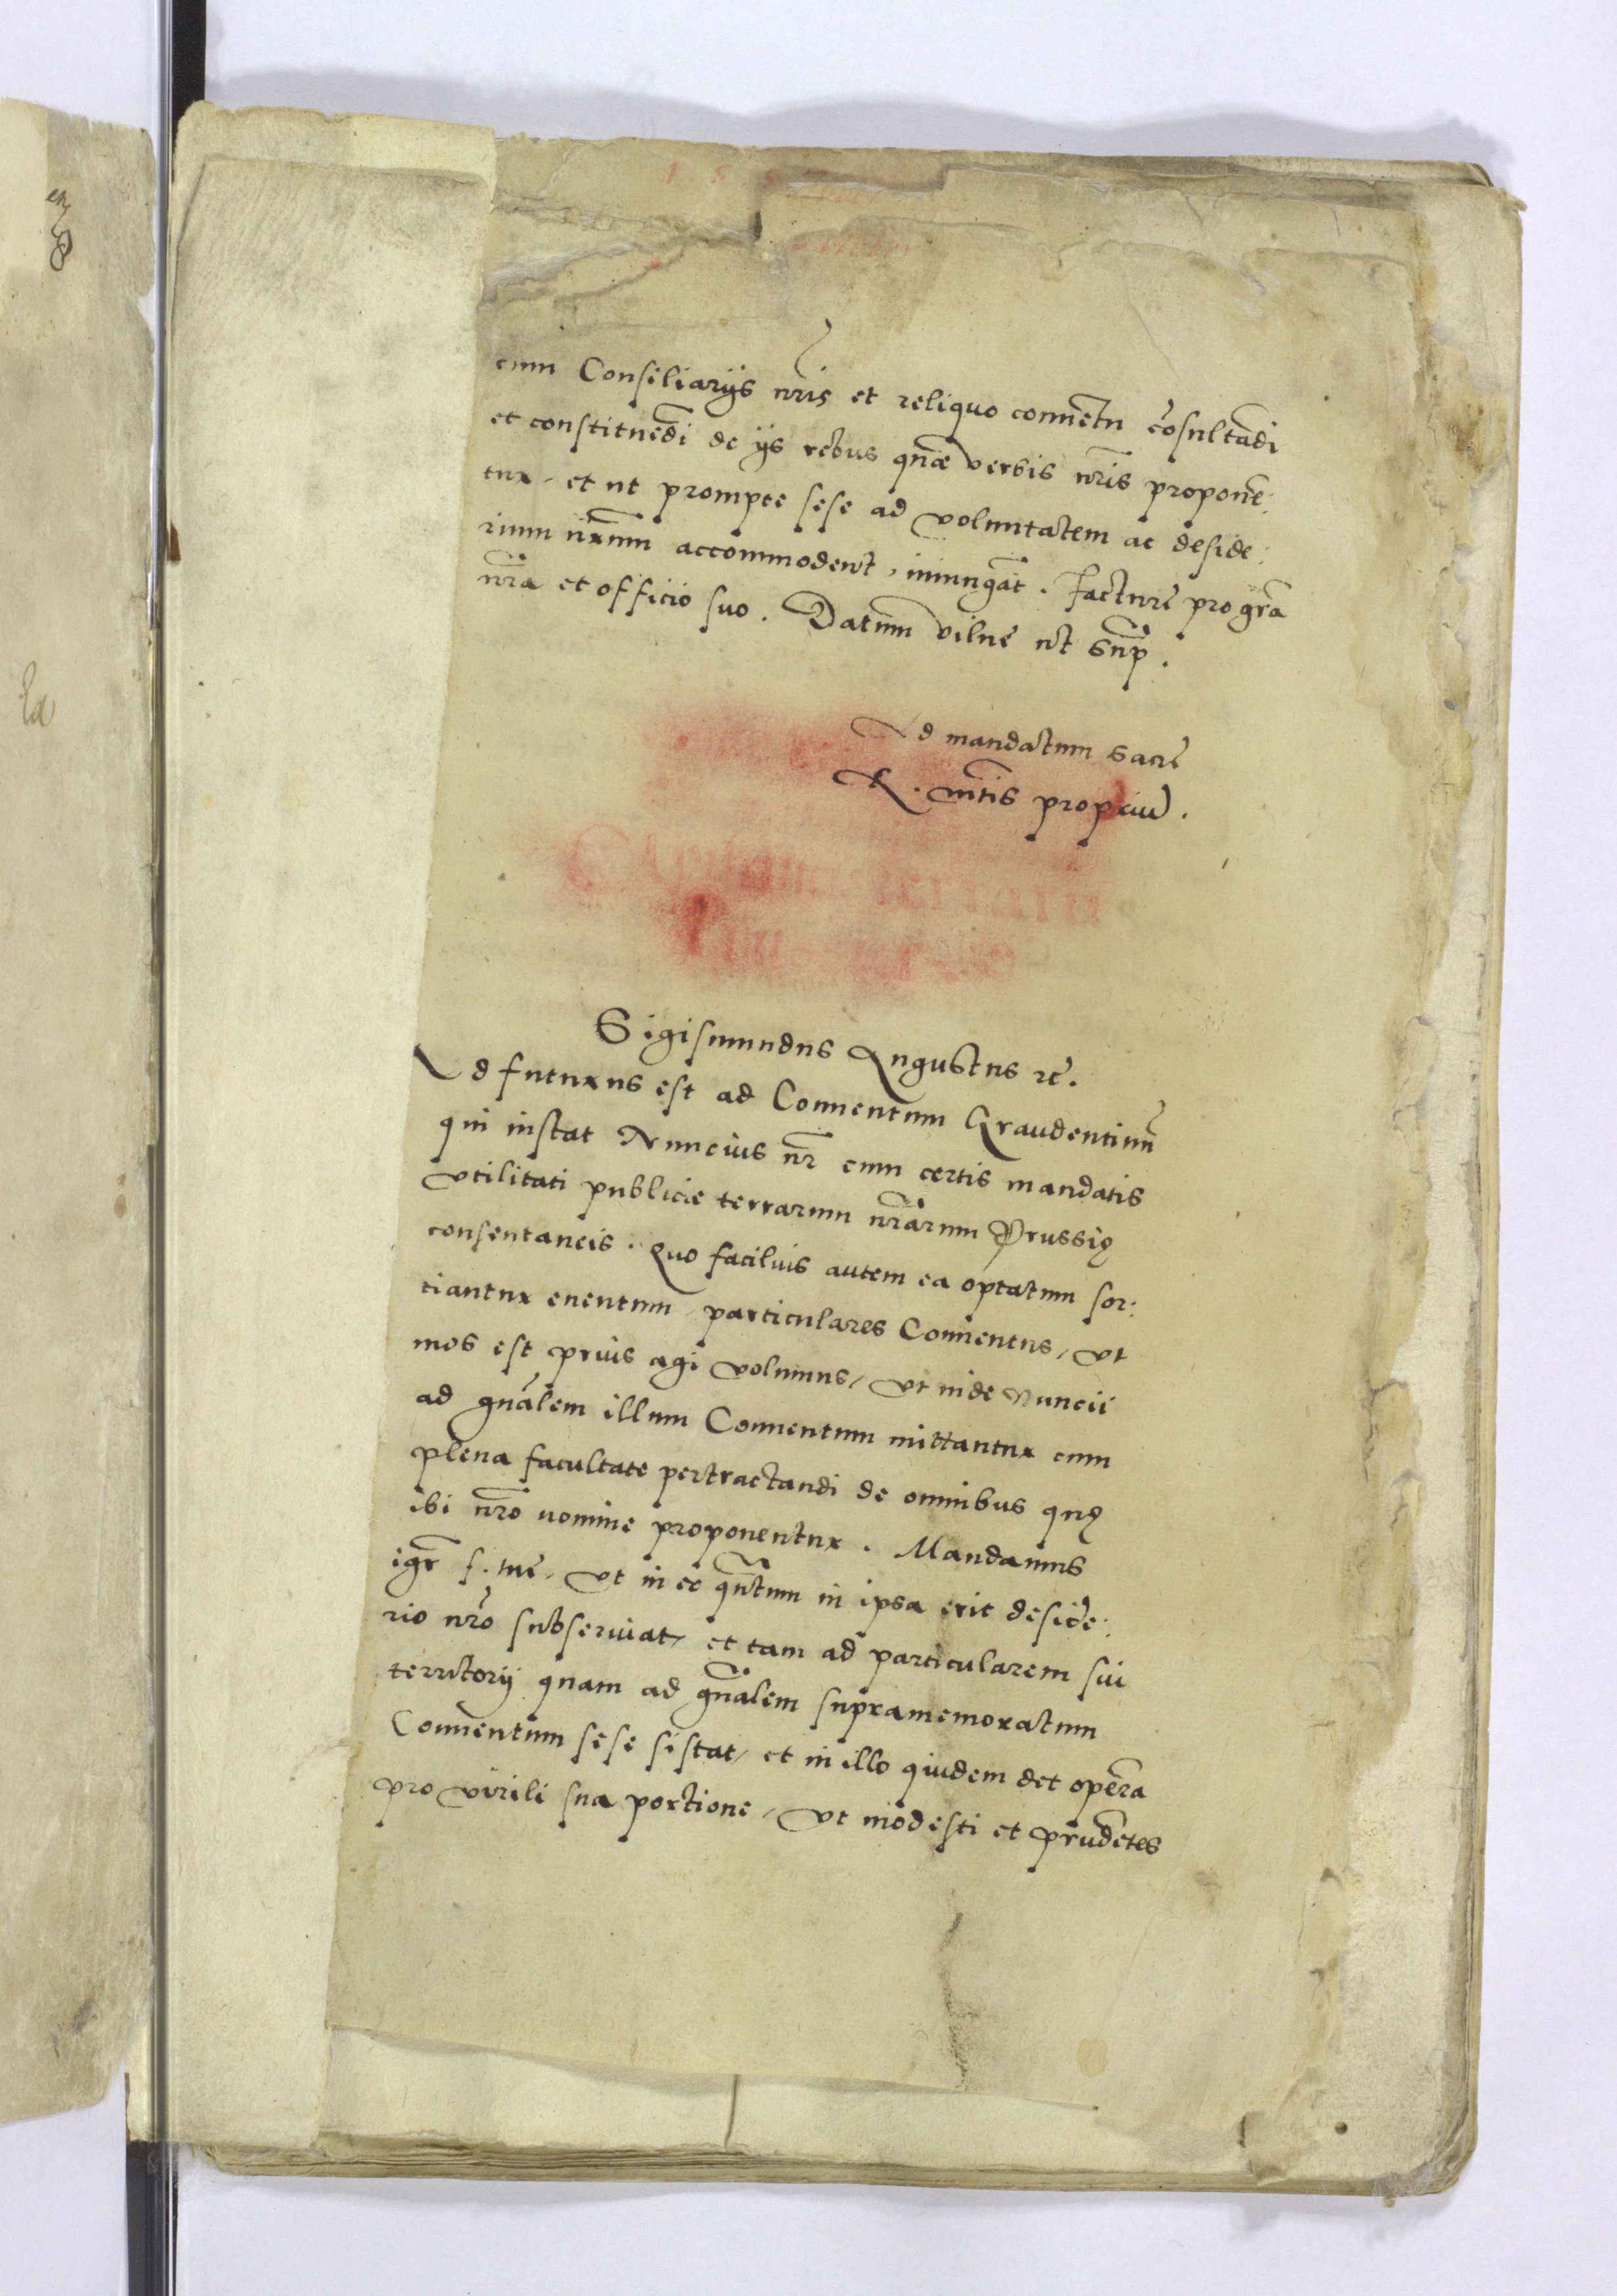 cum Consiliarijs nrīs et reliquo conuētu cōsultādi
et constituēdi de ijs rebus quæ verbis nrīs proponē:
tur, et ut prompte sese ad voluntatem ac deside:
rium nrūm accommodent, iniungāt. Facture pro grā
nrā et officio suo. Datum Vilne ut sup̄.
Ad mandatum Sacre
R. Mtīs propriū.
Sigismundus Augustus rc̄.
Ad futurus est ad Conuentum Graudentinū
qui instat Nuncius nr̄ cum certis mandatis
vtilitati publicæ terrarum nrārum Prussię
consentaneis. Quo facilius autem ea optatum sor:
tiantur euentum, particulares Conuentus, vt
mos est prius agi volumus, vt inde Nuncii
ad gnālem illum Conuentum mittantur cum
plena facultate pertractandi de omnibus quę
ibi nrō nomine proponentur. Mandamus
igr̄ s. tue, vt in eo quātum in ipsa erit deside:
rio nrō subseruiat, et tam ad particularem sui
territorij quam ad gnālem supramemoratum
Conuentum sese sistat, et in illo quidem det operā
pro virili sua portione, vt modesti et prudētes